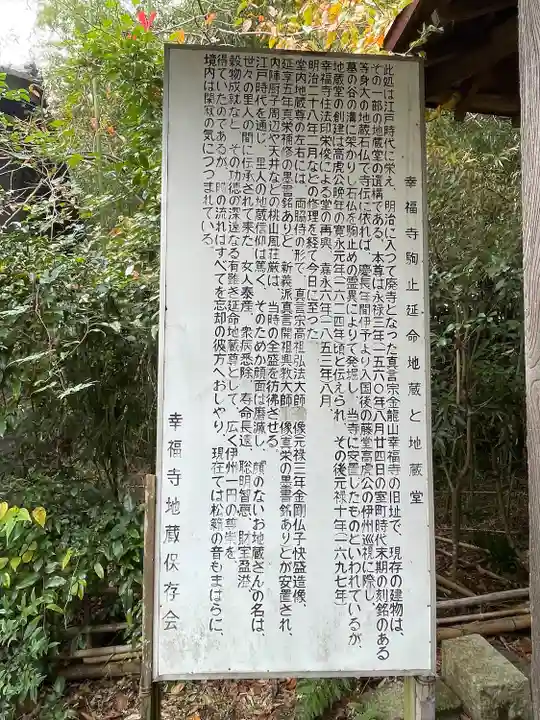 幸福寺駒止延命地蔵と地蔵堂
此処は江戸時代に栄え、明治に入つて廃寺となった真言宗金龍山幸福寺の旧址で、現存の建物は、
その一部の地蔵堂の遺構である。本尊は永禄三年(一五六〇年)八月廿四日の室町時代末期の刻銘のある
等身大の地蔵石仏で寺伝に依れば、慶長年間伊予より入国後の藤堂高虎公の伊州巡視に際し、
墓の谷の溝に架かりし石仏を駒止めの霊異によりて発堀し、当寺に安置したものといわれているが、
地蔵堂の創建は高虎公晩年の寛永元年(一六二四年)頃と伝えられ、その後元禄十年(一六九七年)
幸福寺住法印栄俊による堂の再興、嘉永六年(一八五三年)八月、
明治二十八年二月などの修理を経て今日に至った。
堂内地蔵尊の左右には、両脇侍の形で、真言宗高祖弘法大師像(元禄三年金剛仏子快盛造像、
延享五年真栄補修の墨書銘あり)と、新義派真言開祖興教大師像(真栄の墨書銘あり)とが安置され、
内陣厨子周辺や天井などの桃山風荘厳は、当時の全盛を彷彿させる。
江戸時代を通じ、里人の地蔵信仰は篤く、そのためか顔面は磨滅し、顔のないお地蔵さんの名は、
世々の里人の間に伝承されて来た。女人泰産、衆病悉除、寿命長遠、聡明智恵、財宝盈溢、
穀物成就など、その功徳の深遠なる有難さ延命地蔵尊として、広く伊州一円の尊崇を、
得ていたのであるが、時の流れはすべてを忘却の彼方へおしやり、現在では松籟の音もまばらに、
境内は閑寂の気につつまれている。
幸福寺地蔵保存会